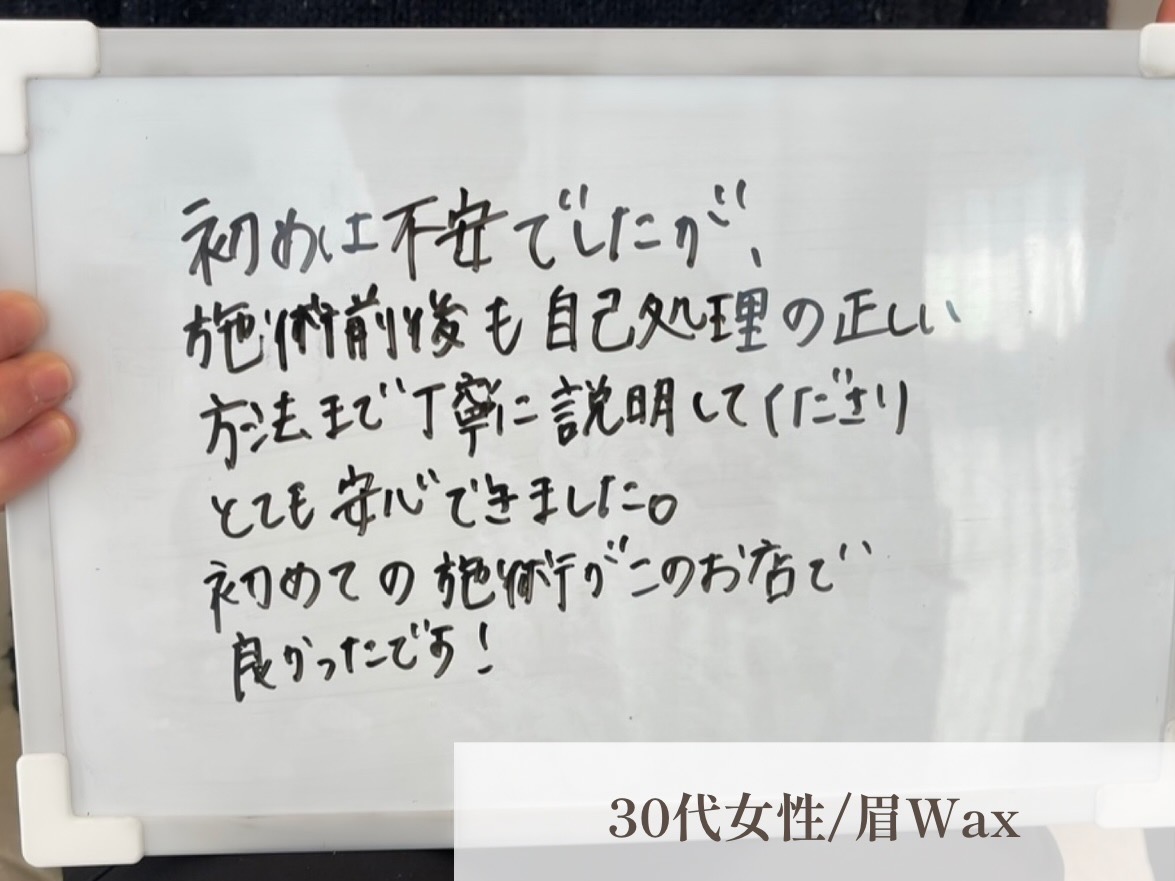 初めは不安でしたが、
施術前後も自己処理の正しい
方法まで丁寧に説明してくださり
とても安心できました。
初めての施術がこのお店で
良かったです!
30代女性/眉Wax